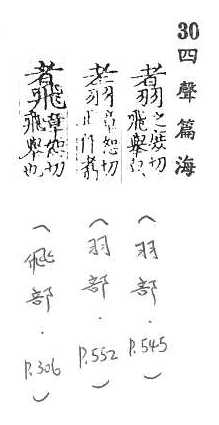 30 四聲篇海
翥 切 飛舉
章恕切
章恕切 飛舉也
(羽部.P.545)
(羽部.P.552)
(飛部.P.306)